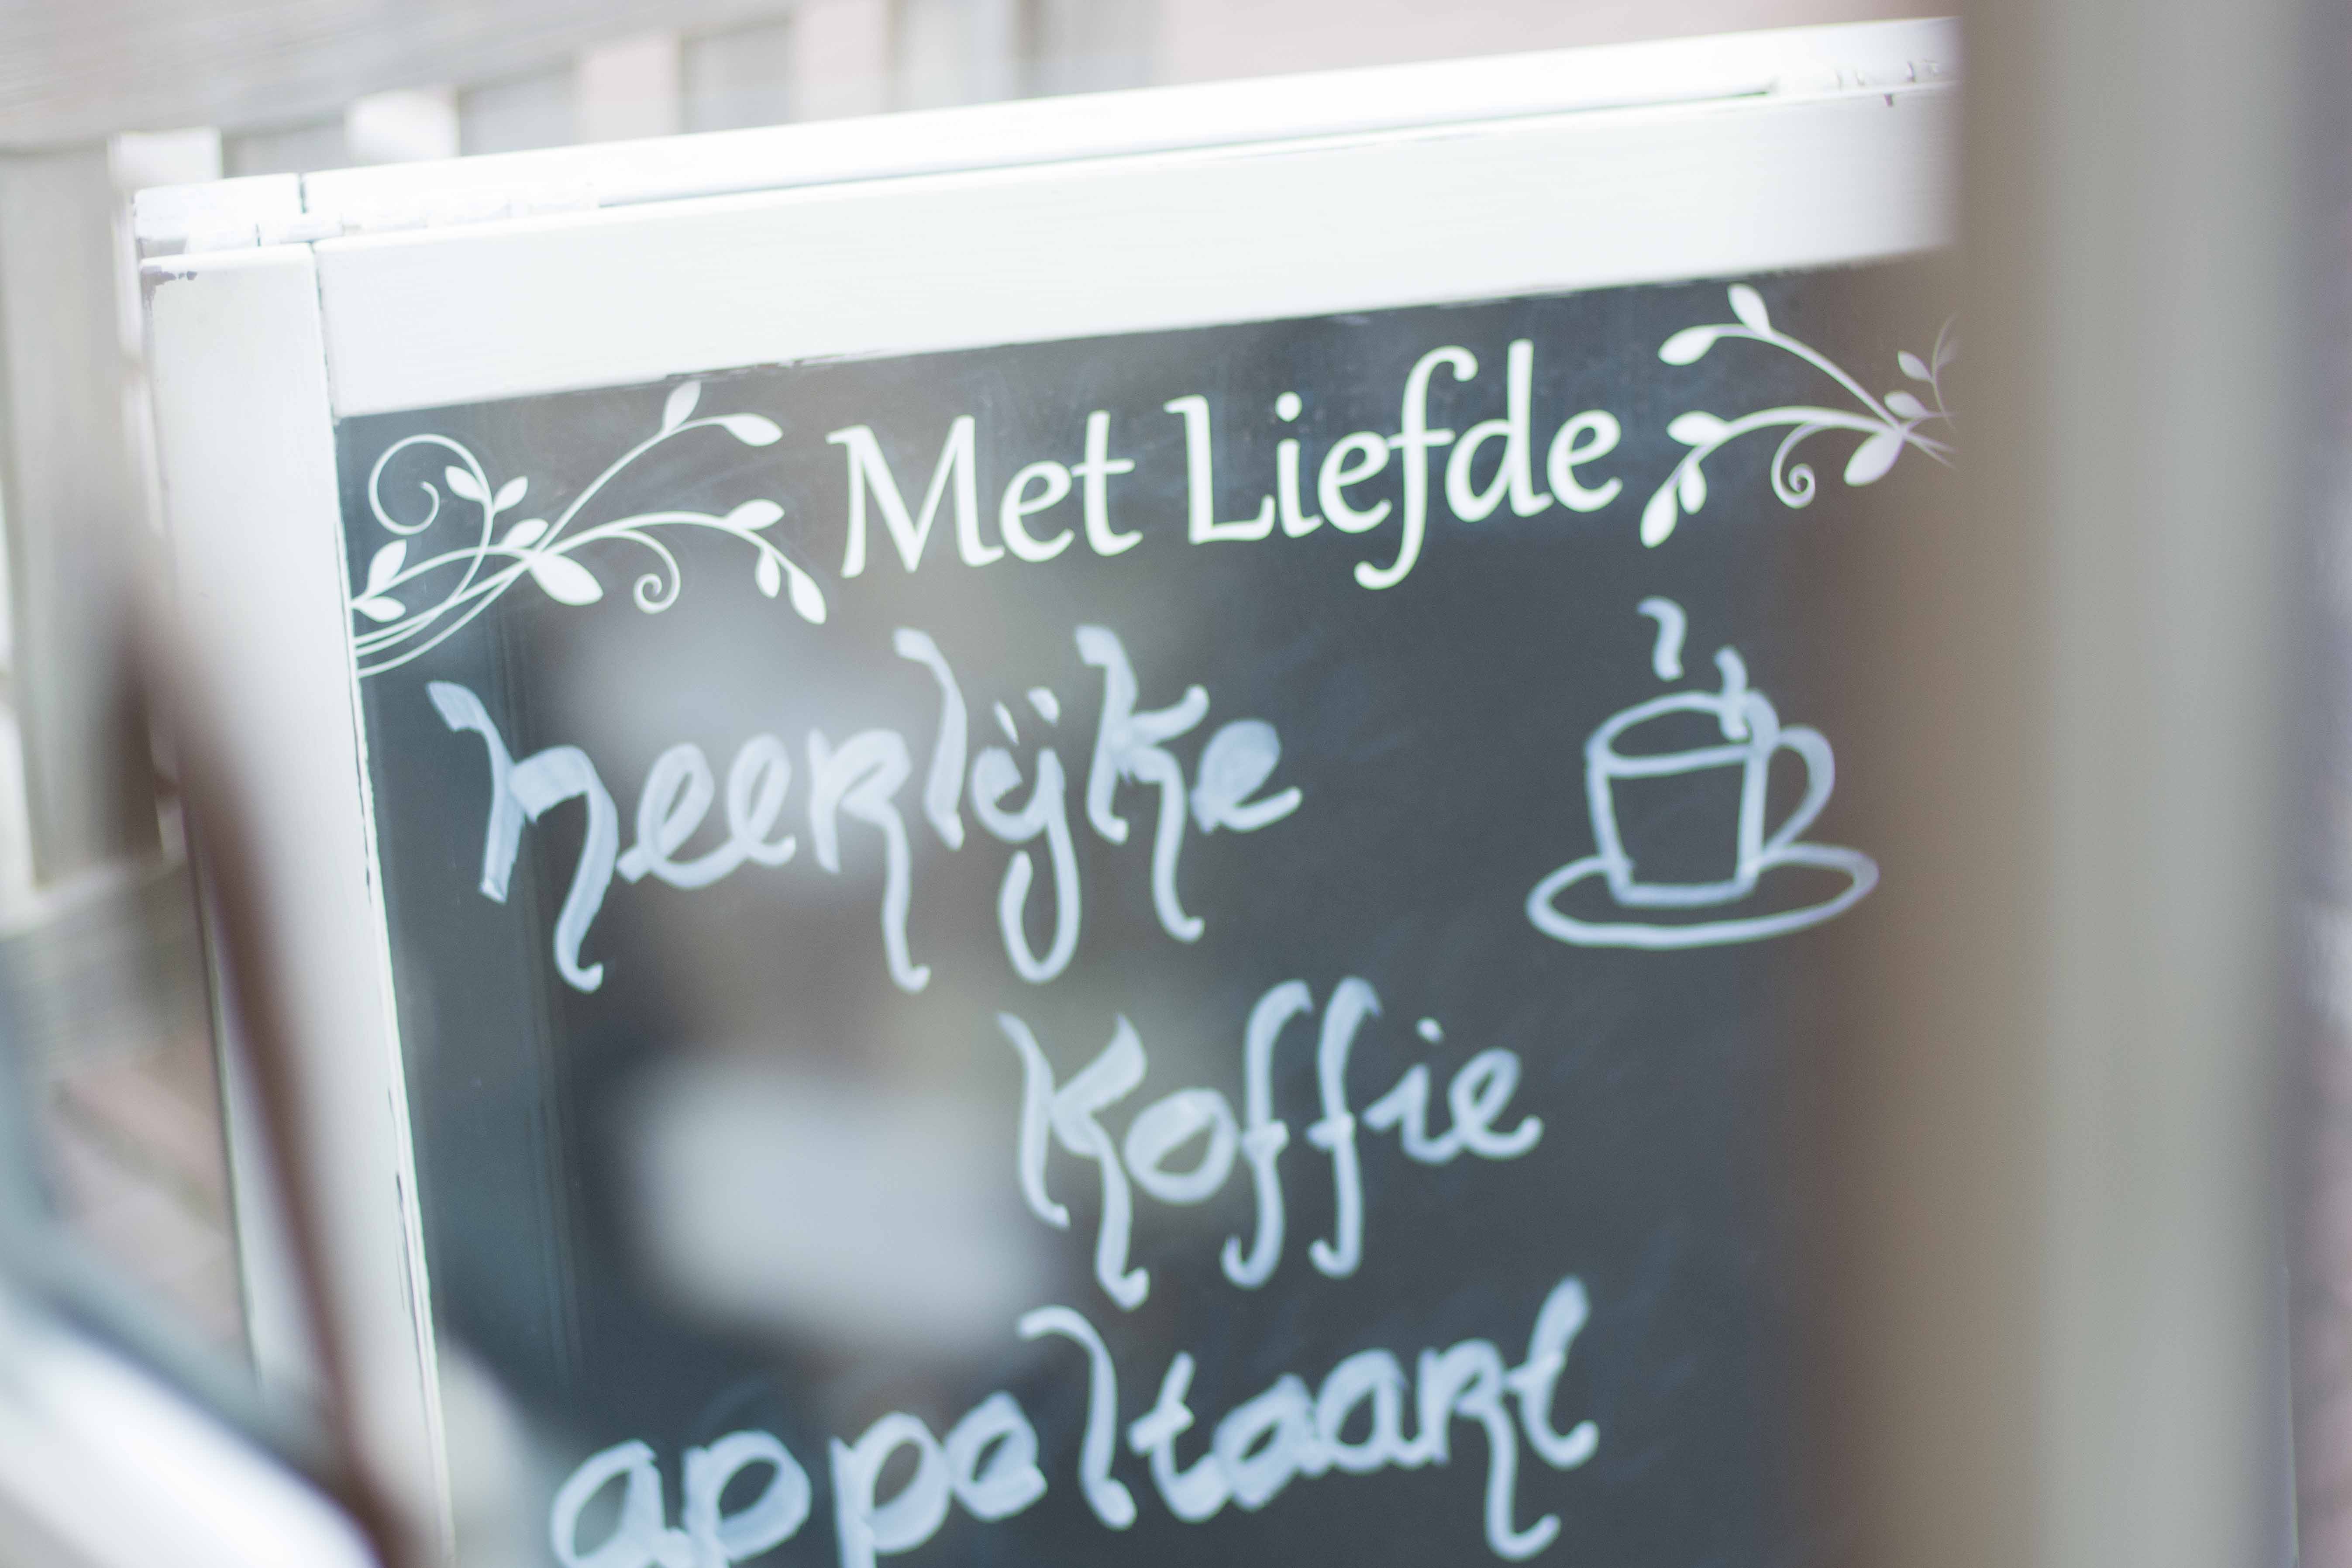 Met Liefde
heerlijke
koffie
appeltaart